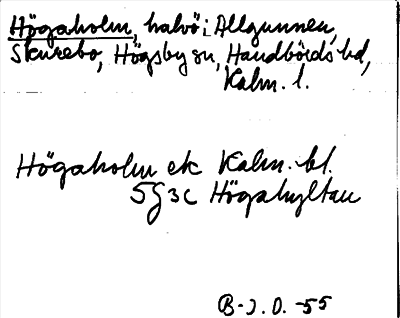 Högaholm, halvö i Allgunnen,
Skurebo, Högsby sn, Handbörds hd,
Kalm. l.
Högaholm ek Kalm. bl.
5G3c Högahyltan
B-J. O. -55